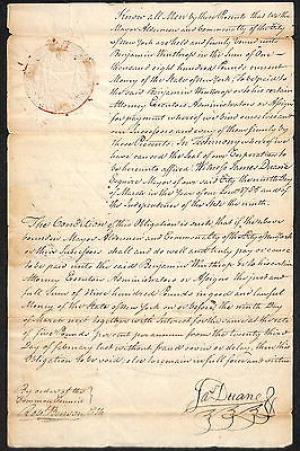 Know all Men by these Presents that We the
Mayor Aldermen and Commonalty of the City
of New York are held and firmly bound unto
Benjamin Winthrop in the Sum of One
thousand eight hundred Pounds current
Money of the State of New York, To be paid to
the said Benjamin Winthrop or his certain
Attorney Executors Administrators or Assigns
for payment whereof we bind ourselves and
our Successors and every of them firmly by
these Presents. In Testimony whereof we
have caused the Seal of our Corporation to
be hereunto affixed. Witness James Duane
Esquire Mayor of our said City this ninth Day
of March in the Year of our Lord 1785 and of
the Independence of the State the ninth.
The Condition of this Obligation is such, that if the above
bounden Mayor Aldermen and Commonalty of the City of New York
or their Successors shall and do well and truly pay or cause
to be paid unto the said Benjamin Winthrop or his certain
Attorney Executors Administrators or Assigns the just and
full Sum of nine hundred Pounds in good and lawful
Money of the State of New York on or before the ninth Day
of March next together with Interest for the same at the rate
of five Pounds per Cent per annum from the twenty third
Day of February last without fraud or delay, then this
Obligation to be void, else to remain in full force and virtue
By order of the
Common Council
Robt Benson Clk
Jas Duane